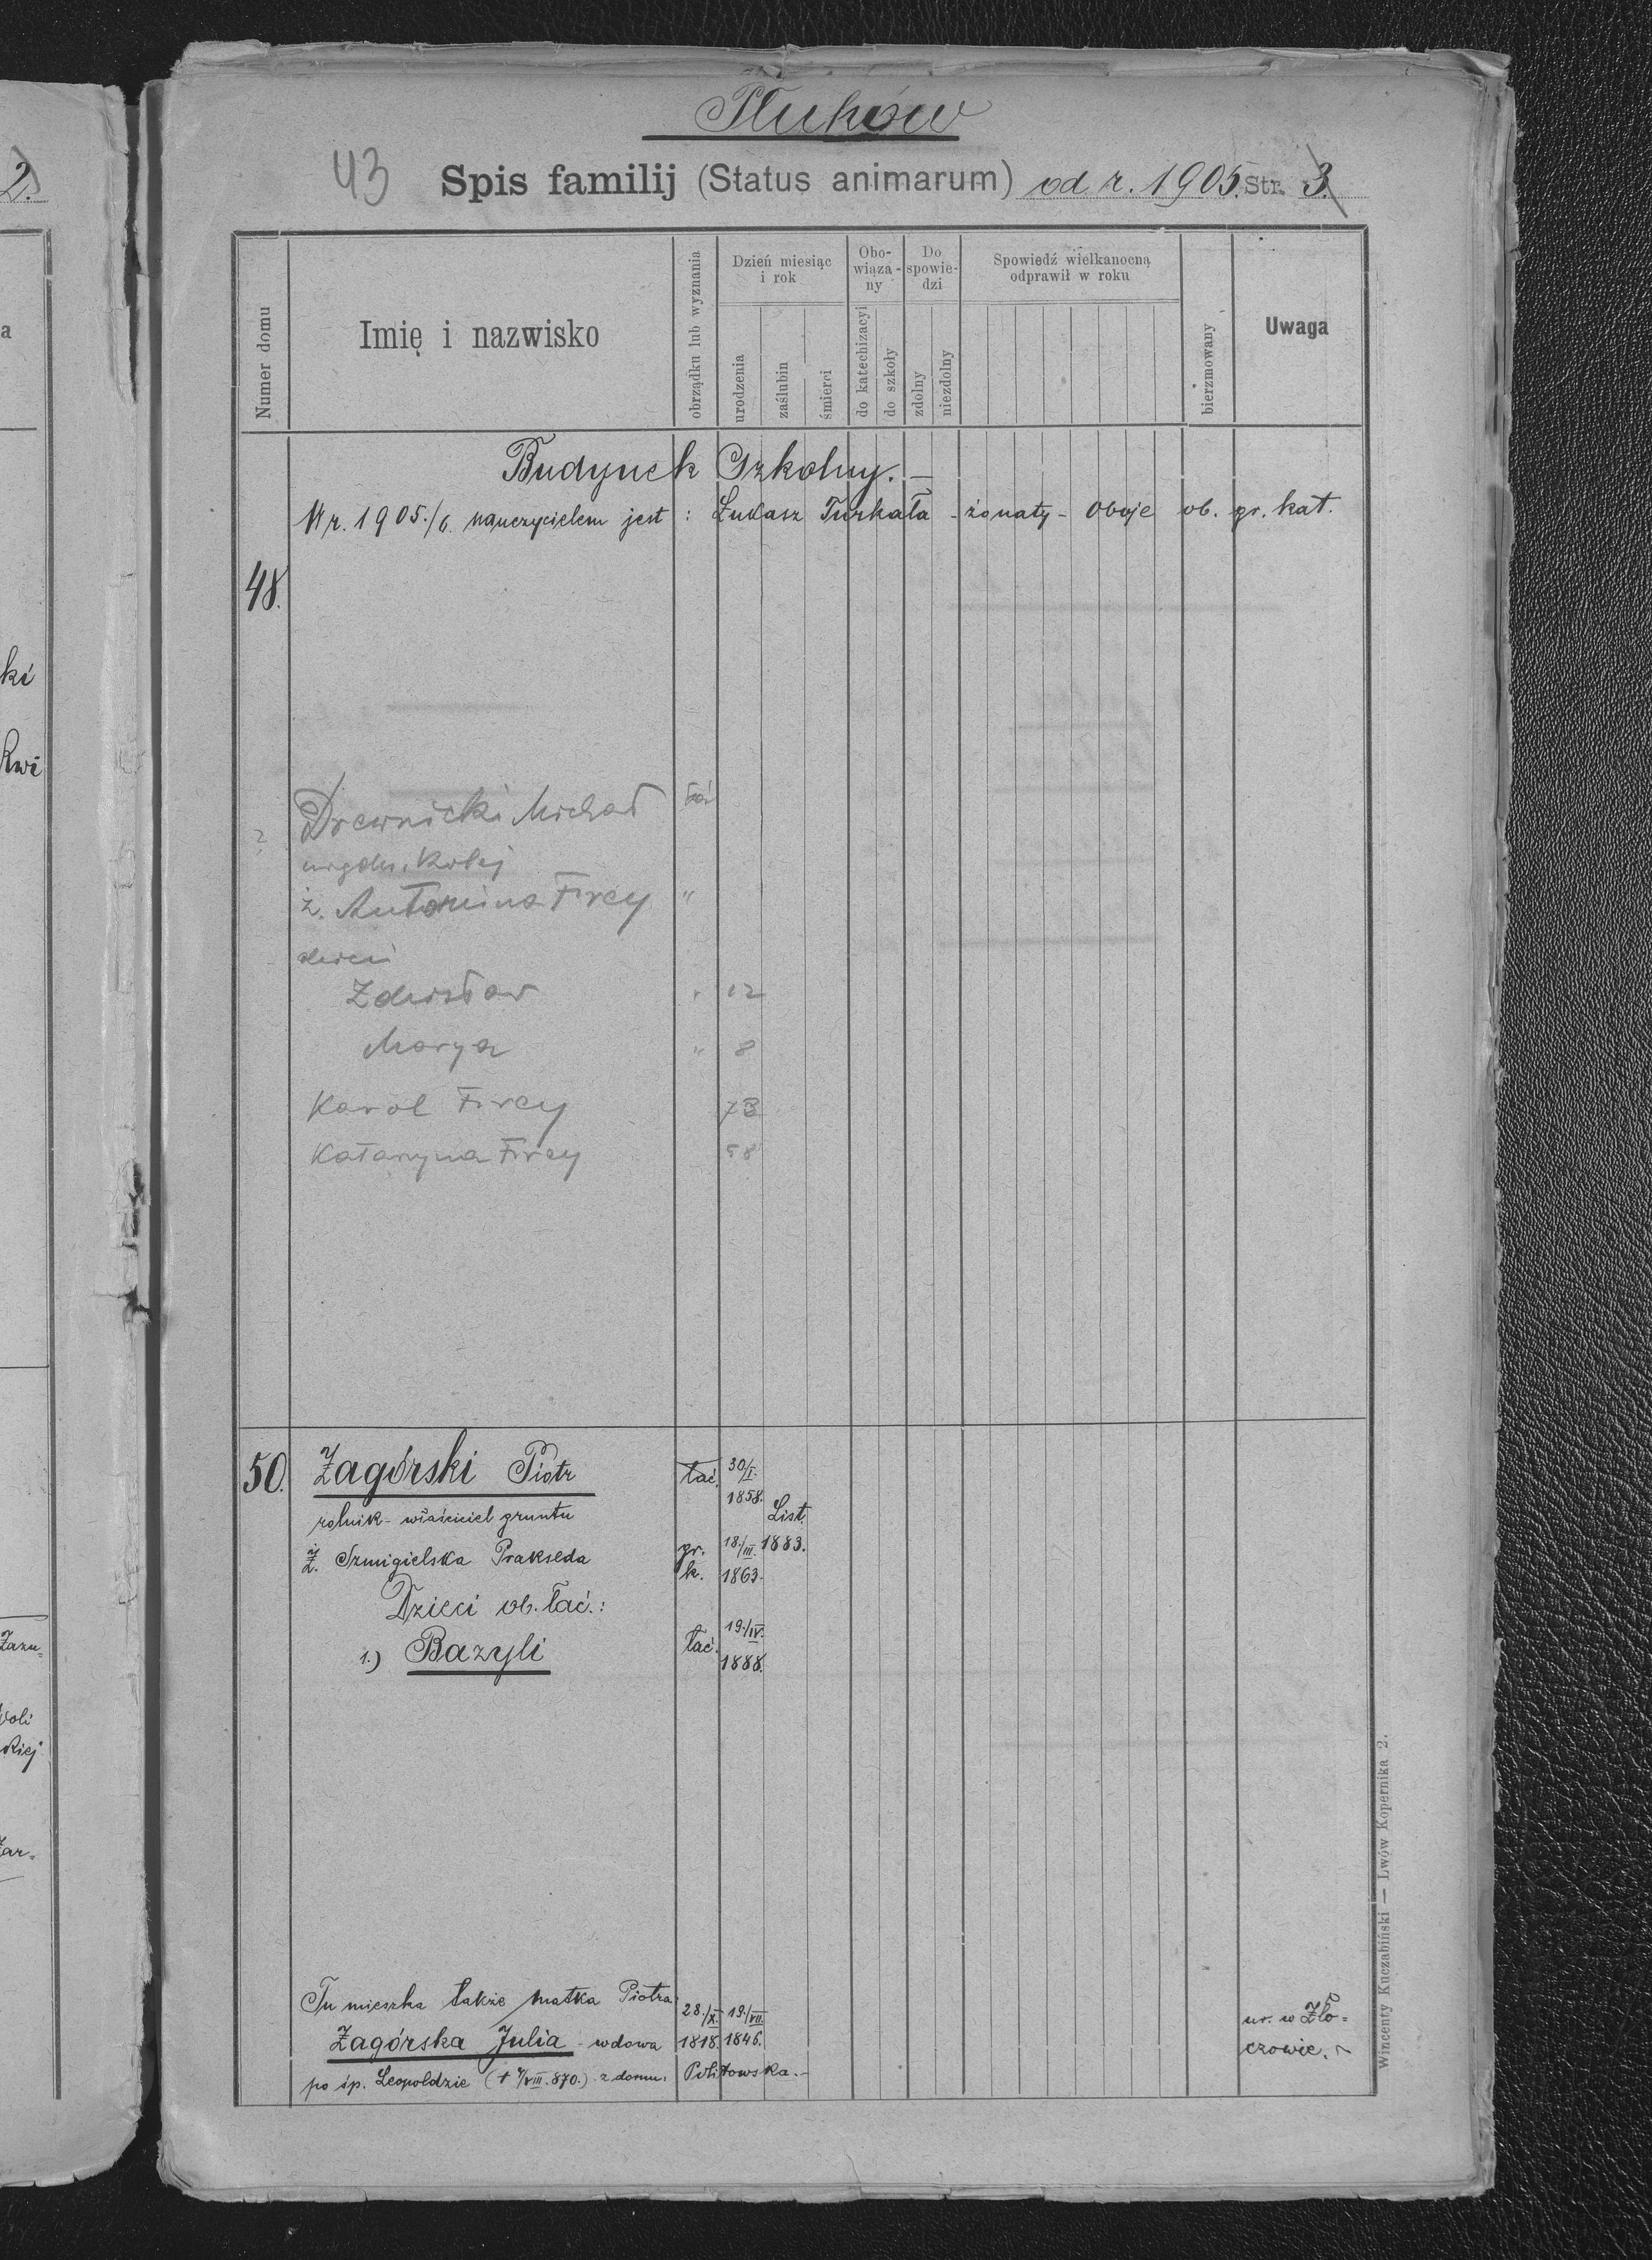 Płuhów
43 Spis familij (Status animarum) od r. 1905. Str. 3.
Numer domu
Imię i nazwisko
obrządku lub wyznania
Dzień miesiąc i rok
urodzenia
zaślubin
śmierci
Obo-wiąza-ny
do katechizacyi
do szkoły
Do spowie-dzi
zdolny
niezdolny
Spowiedź wielkanocną odprawił w roku
bierzmowany
Uwaga
Budynek Szkolny. —
W r. 1905./6. nauczycielem jest : Łukasz Turkała - żonaty - oboje ob. gr. kat.
48.
? Drewnicki Michał łać
ż. Antonina Frey "
dzieci
Zdzisław " 12
Marya " 8
Karol Frey
Katarzyna Frey 58
50. Zagórski Piotr łać. 30/I. 1858.
rolnik - właściciel gruntu List. 1883.
ż. Szmigielska Prakseda gr. k. 18./III. 1863.
Dzieci ob. łać.:
1.) Bazyli łać. 19./IV. 1888.
Tu mieszka także matka Piotra 28./X. 19./VII.
Zagórska Julia - wdowa 1818. 1846.
po śp. Leopoldzie ( + /VIII. 870.) z domu: Politowska. -
ur. w Zło=
czowie.
Wincenty Kuczabiński — Lwów Kopernika 2.
2.
a
ki
kwi
Kiej